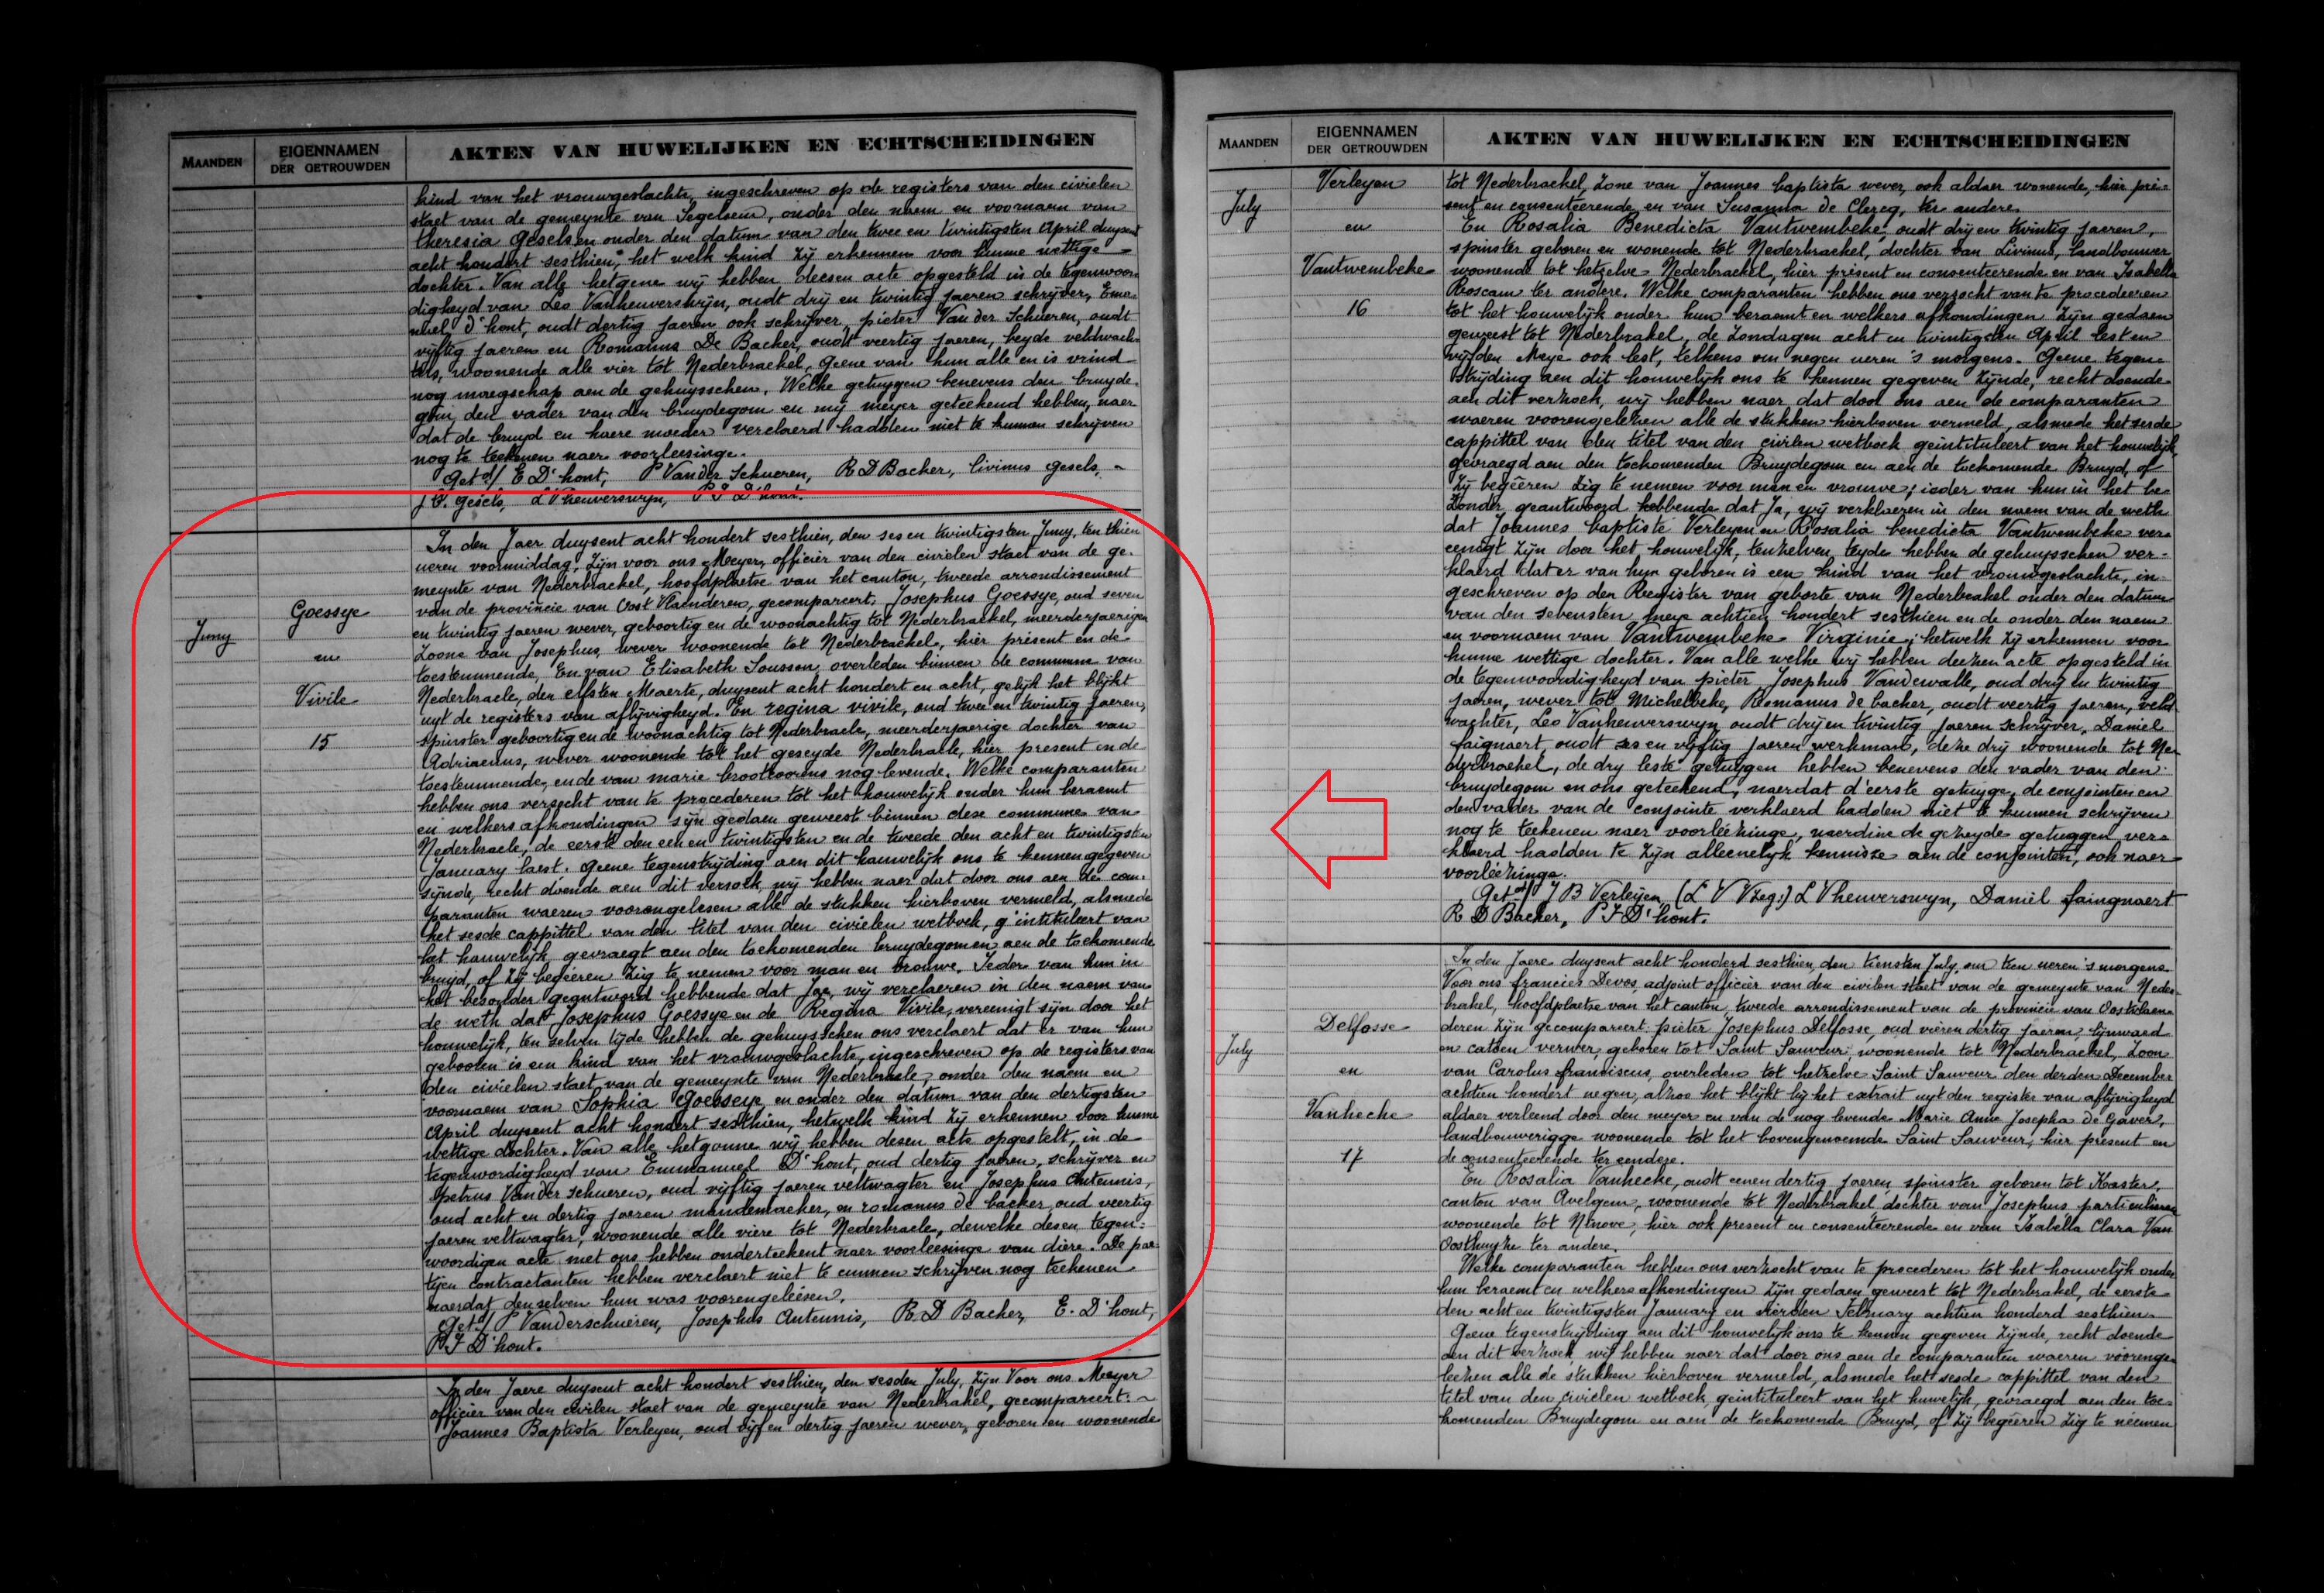 MAANDEN
EIGENNAMEN
DER GETROUWDEN
AKTEN VAN HUWELIJKEN EN ECHTSCHEIDINGEN
kind van het vrouwgeslachte, ingeschreven op de registers van den civielen
staet van de gemeynte van Segelsem, onder den naem en voornaem van
theresia gesels en onder den datum van den twee en twintigsten April duysent
acht hondert sesthien, het welk kind zy erkennen voor hunne wettige
dochter. Van alle hetgene wij hebben deesen acte opgesteld in de tegenwoor-
digheyd van Leo Vanheuverswijn, oudt drij en twintig jaeren schrijver, Ema-
nuel D'hont, oudt dertig jaeren ook schrijver, pieter Van der Schueren, oudt
vijftig jaeren en Romanus De Backer, oudt veertig jaeren, beyde veldwach-
ters, woonende alle vier tot Nederbrackel, geene van hun alle en is vrind
nog maegschap aen de gehuysschen. Welke getuygen benevens den bruyde-
gom, den vader van den bruydegom en mij meyer geteekend hebben, naer
dat de bruyd en haere moeder verclaerd hadden niet te kunnen schrijven
nog te teekenen naer voorleesinge.
Get d/ E D'hont, P Van der Schueren, R D Backer, livinus gesels,
J B. gesels, L Vheuverswyn, P J D'hont.
Juny
Goessye
en
Vivile
15
In den Jaer duysent acht hondert sesthien, den ses en twintigsten Juny, ten thien
ueren voormiddag, zijn voor ons Meyer, officier van den civielen staet van de ge-
meynte van Nederbrackel, hoofdplaetse van het canton, tweede arrondissement
van de provincie van Oost Vlaenderen, gecompareert, Josephus Goessye, oud seven
en twintig jaeren wever, geboortig en de woonachtig tot Nederbrackel, meerderjaerigen
Zoone van Josephus, wever woonende tot Nederbrackel, hier present en de
toestemmende, En van Elisabeth Soussen, overleden binnen de commune van
Nederbracle, den elfsten Maerte, duysent acht hondert en acht, gelijk het blijkt
uyt de registers van aflijvigheyd. En regina vivile, oud twee en twintig jaeren,
spinster geboortig en de woonachtig tot Nederbracle, meerderjaerige dochter van
Adriaenus, wever woonende tot het geseyde Nederbracle, hier present en de
toestemmende, en de van marie brootcoorens nog levende. Welke comparanten
hebben ons versocht van te procederen tot het houwelijk onder hun beraemt
en welkers afkondingen sijn gedaen geweest binnen dese commune van
Nederbracle, de eerste den een en twintigsten en de tweede den acht en twintigsten
January laest. Geene tegenstrijding aen dit hauwelijk ons te kennen gegeven
sijnde, recht doende aen dit versoek, wij hebben naer dat door ons aen de com-
paranten waeren voorengelesen alle de stukken hierboven vermeld, alsmede
het sesde cappittel van den titel van den civielen wetboek, g'intituleert van
het hauwelijk, gevraegt aen den toekomenden bruydegom en aen de toekomende
bruyd, of zij begeëren zig te nemen voor man en vrouwe. Jeder van hun in
het besonder geantword hebbende dat Jae, wij verclaeren in den naem van
de weth dat Josephus Goessye en de Regina Vivile, vereenigt sijn door het
houwelijk, ten selven tijde hebben de gehuysschen ons verclaert dat er van hun
gebooren is een kind van het vrouwgeslachte, ingeschreven op de registers van
den civielen staet van de gemeynte van Nederbracle, onder den naem en
voornaem van Sophia Goessye, en onder den datum van den dertigsten
April duysent acht hondert sesthien, hetwelk kind zij erkennen voor hunne
wettige dochter. Van alle hetgonne wij hebben desen akte opgestelt, in de
tegenwordigheyd van Emmanuel D'hont, oud dertig jaeren, schrijver en
petrus Van der schueren, oud vijftig jaeren veltwagter en Josephus Auteunis,
oud acht en dertig jaeren mandemaeker, en romanus de backer, oud veertig
jaeren veltwagter, woonende alle viere tot Nederbracle, dewelke desen tegen-
woordigen acte met ons hebben onderteekent naer voorleesinge van diere. De par-
tijen contractanten hebben verclaert niet te cunnen schrijven nog teekenen
naerdat denselven hun was voorengeleesen.
Get d/ P Vanderschueren, Josephus Auteunis, R D Backer, E. D'hont,
P J D'hont.
In den Jaere duysent acht hondert sesthien, den sesden July, zijn Voor ons Meeyer
officier van den civilen staet van de gemeynte van Nederbrakel, gecompareert:
Joannes Baptista Verleyen, oud vijf en dertig jaeren wever, geboren en woonende
MAANDEN
EIGENNAMEN
DER GETROUWDEN
AKTEN VAN HUWELIJKEN EN ECHTSCHEIDINGEN
July
Verleyen
en
Vantwembeke
16
tot Nederbrackel, zone van Joannes baptista wever, ook aldaer wonende, hier pre-
sent en consenteerende, en van Susanna de Clercq, ter andere.
En Rosalia Benedicta Vantwembeke, oudt drij en twintig jaeren,
spinster geboren en wonende tot Nederbrackel, dochter van Livinus, landbouwer
woonende tot hetzelve Nederbrackel, hier present en consenteerende en van Isabella
Roscam ter andere. Welke comparanten hebben ons verzocht van te procedeeren
tot het houwelijk onder hun beraemt en welkers afkondingen zijn gedaen
geweest tot Nederbrakel, de zondagen acht en twintigsten April lest en
vijfden Meye ook lest, telkens om negen ueren 's morgens. Geene tegen-
strijding aen dit houwelijk ons te kennen gegeven zijnde, recht doende
aen dit verzoek, wij hebben naer dat door ons aen de comparanten
waeren voorengelezen alle de stukken hierboven vermeld, alsmede het sesde
cappittel van den titel van den civilen wetboek geintituleert van het houwelijk,
gevraegd aen den toekomenden Bruydegom en aen de toekomende Bruyd, of
zij begëeren zig te nemen voor man en vrouwe; ieder van hun in het be-
zonder geantwoord hebbende dat Ja, wij verklaeren in den naem van de weth
dat Joannes baptiste Verleyen en Rosalia benedicta Vantwembeke ver-
eenigt zijn door het houwelijk, tenzelven teyde hebben de gehuysschen ver-
klaerd dat er van hun geboren is een kind van het vrouwgeslachte, in-
geschreven op den Register van geborte van Nederbrakel onder den datum
van den sevensten meye achtien hondert sesthien en de onder den naem
en voornaem van Vantwembeke Virginie, hetwelk zij erkennen voor
hunne wettige dochter. Van alle welke wij hebben deezen acte opgesteld in
de tegenwoordigheyd van pieter Josephus Vandewalle, oud drij en twintig
jaeren, wever tot Michelbeke, Romanus de backer, oudt veertig jaeren, veld
wachter, Leo Vanheuverswyn oudt drijen twintig jaeren schrijver, Daniel
faignaert, oudt ses en vijftig jaeren werkman, deze drij woonende tot Ne-
derbrackel, de dry leste getuygen hebben benevens den vader van den
bruydegom en ons geteekend, naerdat d'eerste getuyge, de conjointen en
den vader van de conjointe verklaerd hadden niet te kunnen schrijven
nog te teekenen naer voorleezinge, naerdien de gezeyde getuggen ver-
klaerd hadden te zijn alleenelyk kennisse aen de conjointen, ook naer
voorleezinge.
Get d/ J B Verleijen (L V Vzeg:) L Vheuverswyn, Daniël faingnaert
R D Backer, P J D'hont.
July
Delfosse
en
Vanhecke
17
In den jaere duysent acht honderd sesthien, den tiensten July, om tien ueren 's morgens.
Voor ons francies Devos, adjoint officier van den civilen staet van de gemeynte van Neder-
brakel, hoofdplaetse van het canton, tweede arrondissement van de provincie van Oostvlaen-
deren zijn gecompareert: pieter Josephus Delfosse, oud vier en dertig jaeren, lijnwaed
en catoen verwer, geboren tot Saint Sauveur, woonende tot Nederbrackel, Zoon
van Carolus franciscus, overleden tot hetzelve Saint Sauveur den derden December
achtien hondert negen, alzoo het blijkt bij het extrait uyt den register van aflijvigheyd
aldaer verleend door den meyer en van de nog levende Marie Anne Josepha de Gaver,
landbouwerigge woonende tot het bovengenoemde Saint Sauveur, hier present en
de consenteerende ter eendere.
En Rosalia Vanhecke, oudt eenen dertig jaeren, spinster geboren tot Kaster,
canton van Avelgem, woonende tot Nederbrakel, dochter van Josephus particulieren
woonende tot Ninove, hier ook present en consenteerende en van Isabella Clara Van
Oosthuyze ter andere.
Welke comparanten hebben ons verzocht van te procederen tot het houwelijk onder
hun beraemt en welkers afkondingen zijn gedaen geweest tot Nederbrakel, de eerste
den acht en twintigsten January en vierden February achtien honderd sesthien.
Geene tegenstrijding aen dit houwelijk ons te kennen gegeven zijnde, recht doende
aen dit verzoek, wij hebben naer dat door ons aen de comparanten waeren voorenge-
leezen alle de stukken hierboven vermeld, alsmede hett sesde cappittel van den
titel van den civielen wetboek, geintituleert van het huwelijk, gevraegd aen den toe-
komenden Bruydegom en aen de toekomende Bruyd, of zij begëeren zig te nëemen